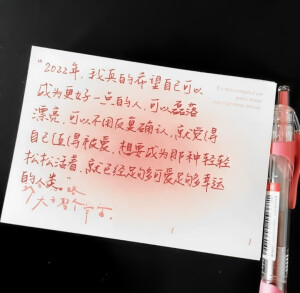 “2022年，我真的希望自己可以
成为更好一点的人，可以磊落
漂亮，可以不用反复确认，就觉得
自己值得被爱，想要成为那种轻轻
松松活着，就已经足够可爱足够幸运
的人类。